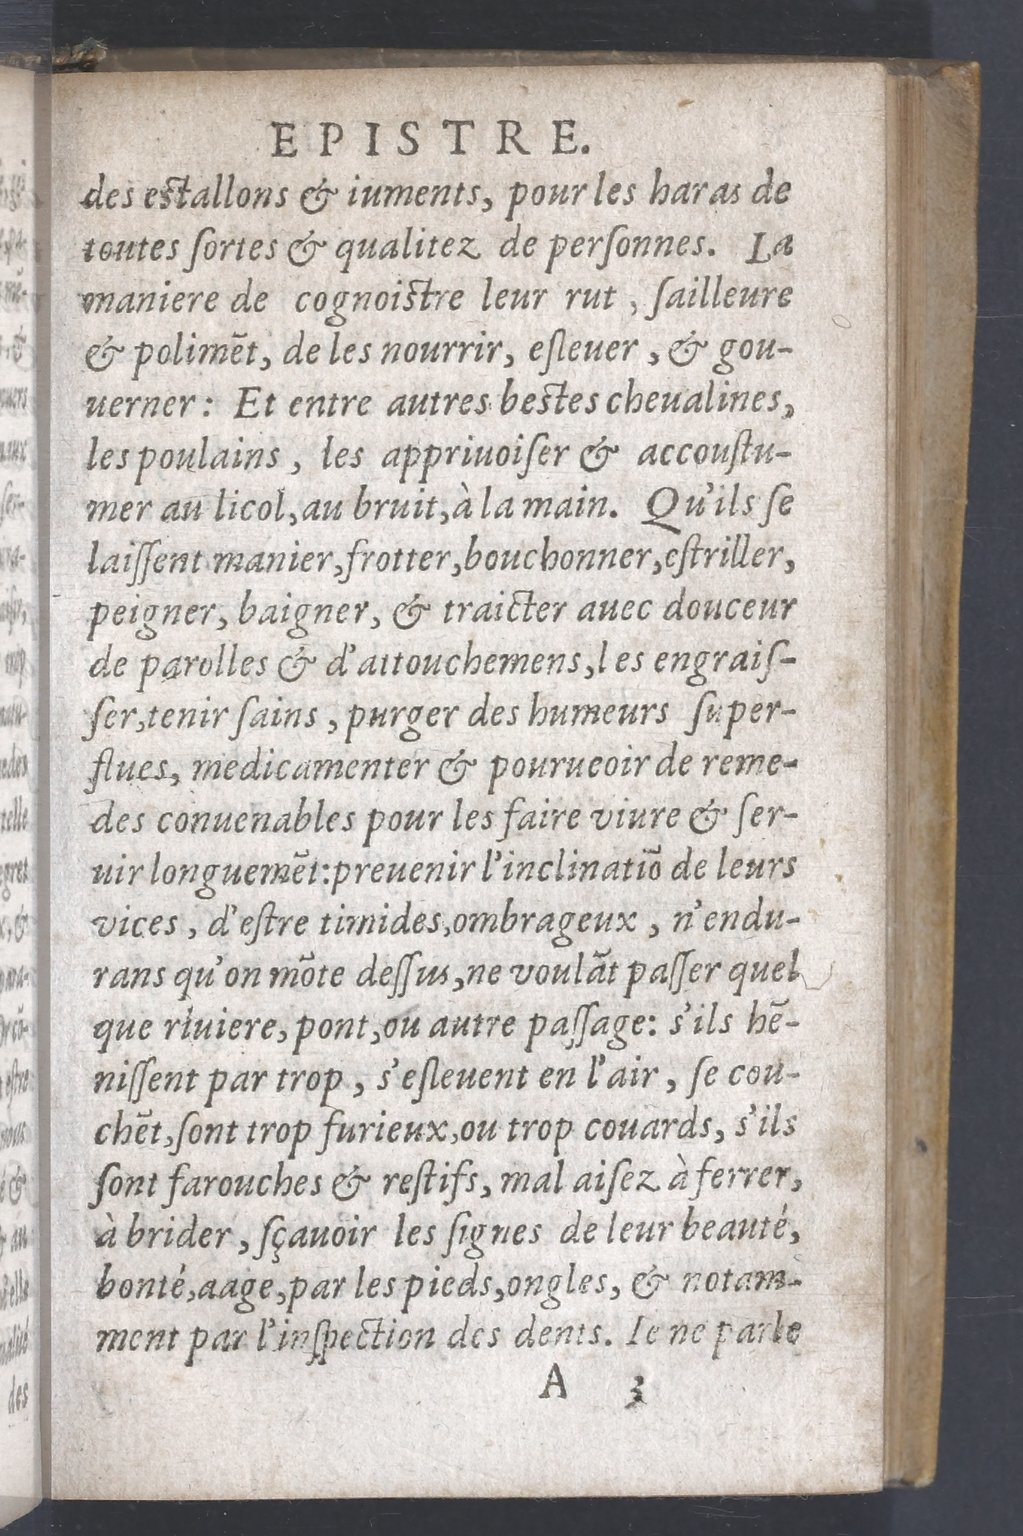 EPISTRE.
des estallons & iuments, pour les haras de
toutes ſortes & qualitez de perſonnes. La
maniere de cognoistre leur rut, ſailleure
& polimẽt, de les nourrir, eſleuer, & gou-
uerner: Et entre autres bestes cheualines,
les poulains, les appriuoiſer & accouſtu-
mer au licol, au bruit, à la main. Qu'ils ſe
laiſſent manier, frotter, bouchonner, eſtriller,
peigner, baigner, & traicter auec douceur
de parolles & d'attouchemens, les engraiſ-
ſer, tenir ſains, purger des humeurs ſuper-
flues, medicamenter & pourueoir de reme-
des conuenables pour les faire viure & ſer-
uir longuemẽt: preuenir l'inclinatiõ de leurs
vices, d'eſtre timides, ombrageux, n'endu-
rans qu'on mõte deſſus, ne voulãt paſſer quel
que riuiere, pont, ou autre paſſage: s'ils hẽ-
niſſent par trop, s'eſleuent en l'air, ſe cou-
chẽt, ſont trop furieux, ou trop couards, s'ils
ſont farouches & reſtifs, mal aiſez à ferrer,
à brider, ſçauoir les ſignes de leur beauté,
bonté, aage, par les pieds, ongles, & notam-
ment par l'inſpection des dents. Ie ne parle
A 3